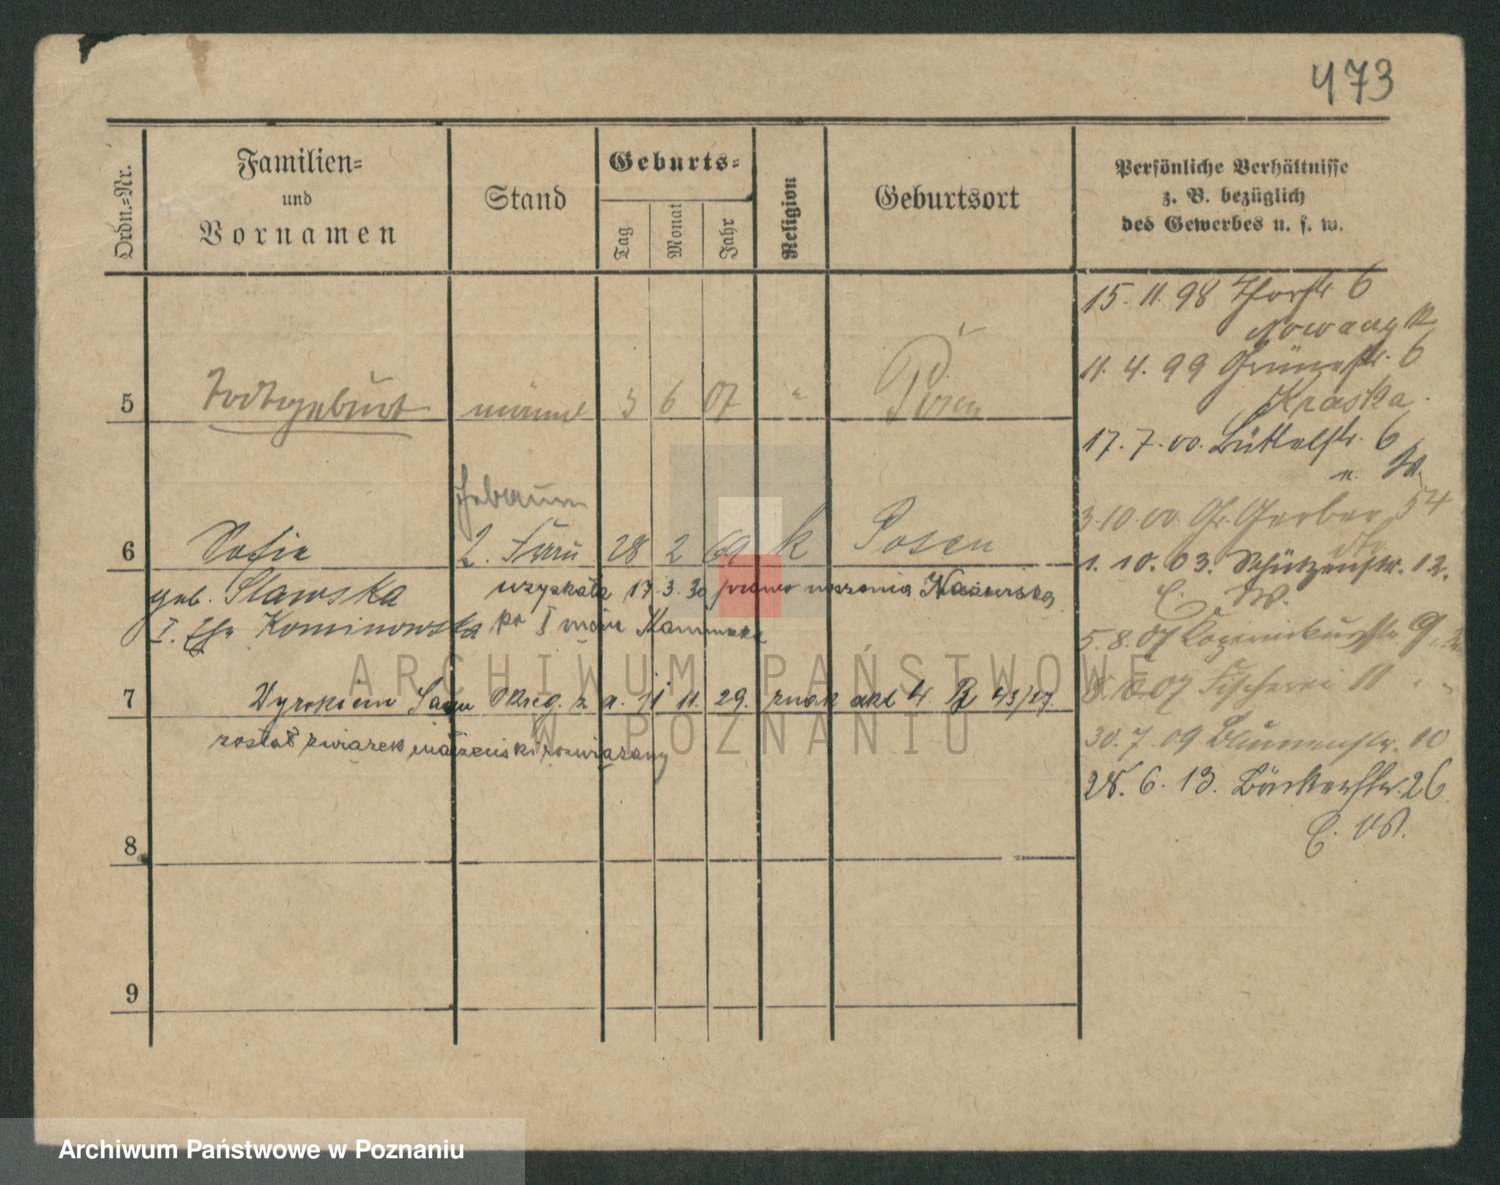 473
Ordn.-Nr.
Familien-
und
Vornamen
Stand
Geburts-
Tag
Monat
Jahr
Religion
Geburtsort
Persönliche Verhältnisse
z. B. bezüglich
des Gewerbes u. s. w.
15. 11. 98 Thorstr 6
11. 4. 99 Grünestr. 6
Kraska.
5 Todtgeburt männl 3 6 07 " Posen
17. 7. 00. Büttelstr. 6
Hebamm
3. 10. 00 Gr. Gerber 54
6 Sofia 2. Frau 28 2 69 k Posen
1. 10. 03. Schützenstr. 12.
C. W.
geb. Slawska
uzyskała 17.3.30 prawo noszenia Nazwiska
I. Ehe Kominowska
po I mężu
5. 8. 07
7 Wyrokiem Sądu Okręg. z d. 11 11. 29. znak akt 4. R 43/27
8. 07 Fischerei 11
został związek małżeński rozwiązany
30. 7. 09 Blumenstr. 10
28. 6. 13. Bäckerstr. 26
C. W.
8
9
ARCHIWUM PAŃSTWOWE
W POZNANIU
Archiwum Państwowe w Poznaniu